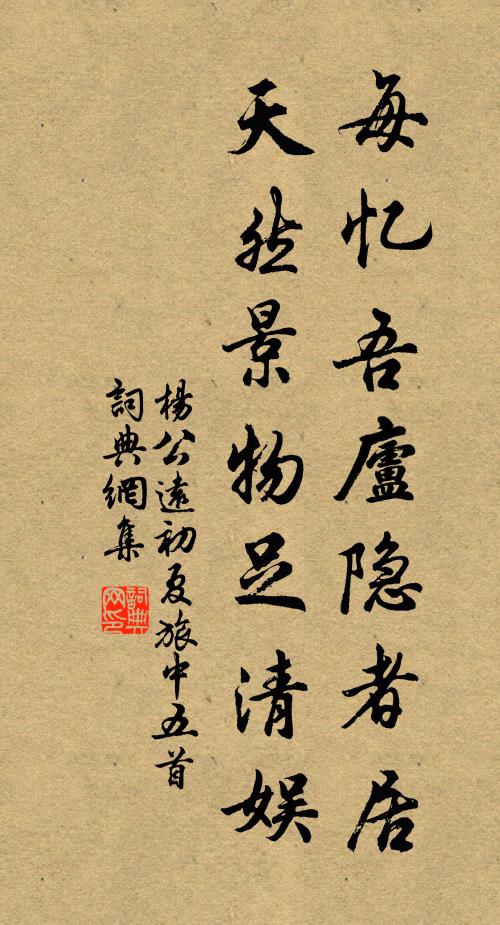 每忆吾廬隐者居
天然景物足清娱
楊公遠初夏旅中五首
詞典網集
詞典网印